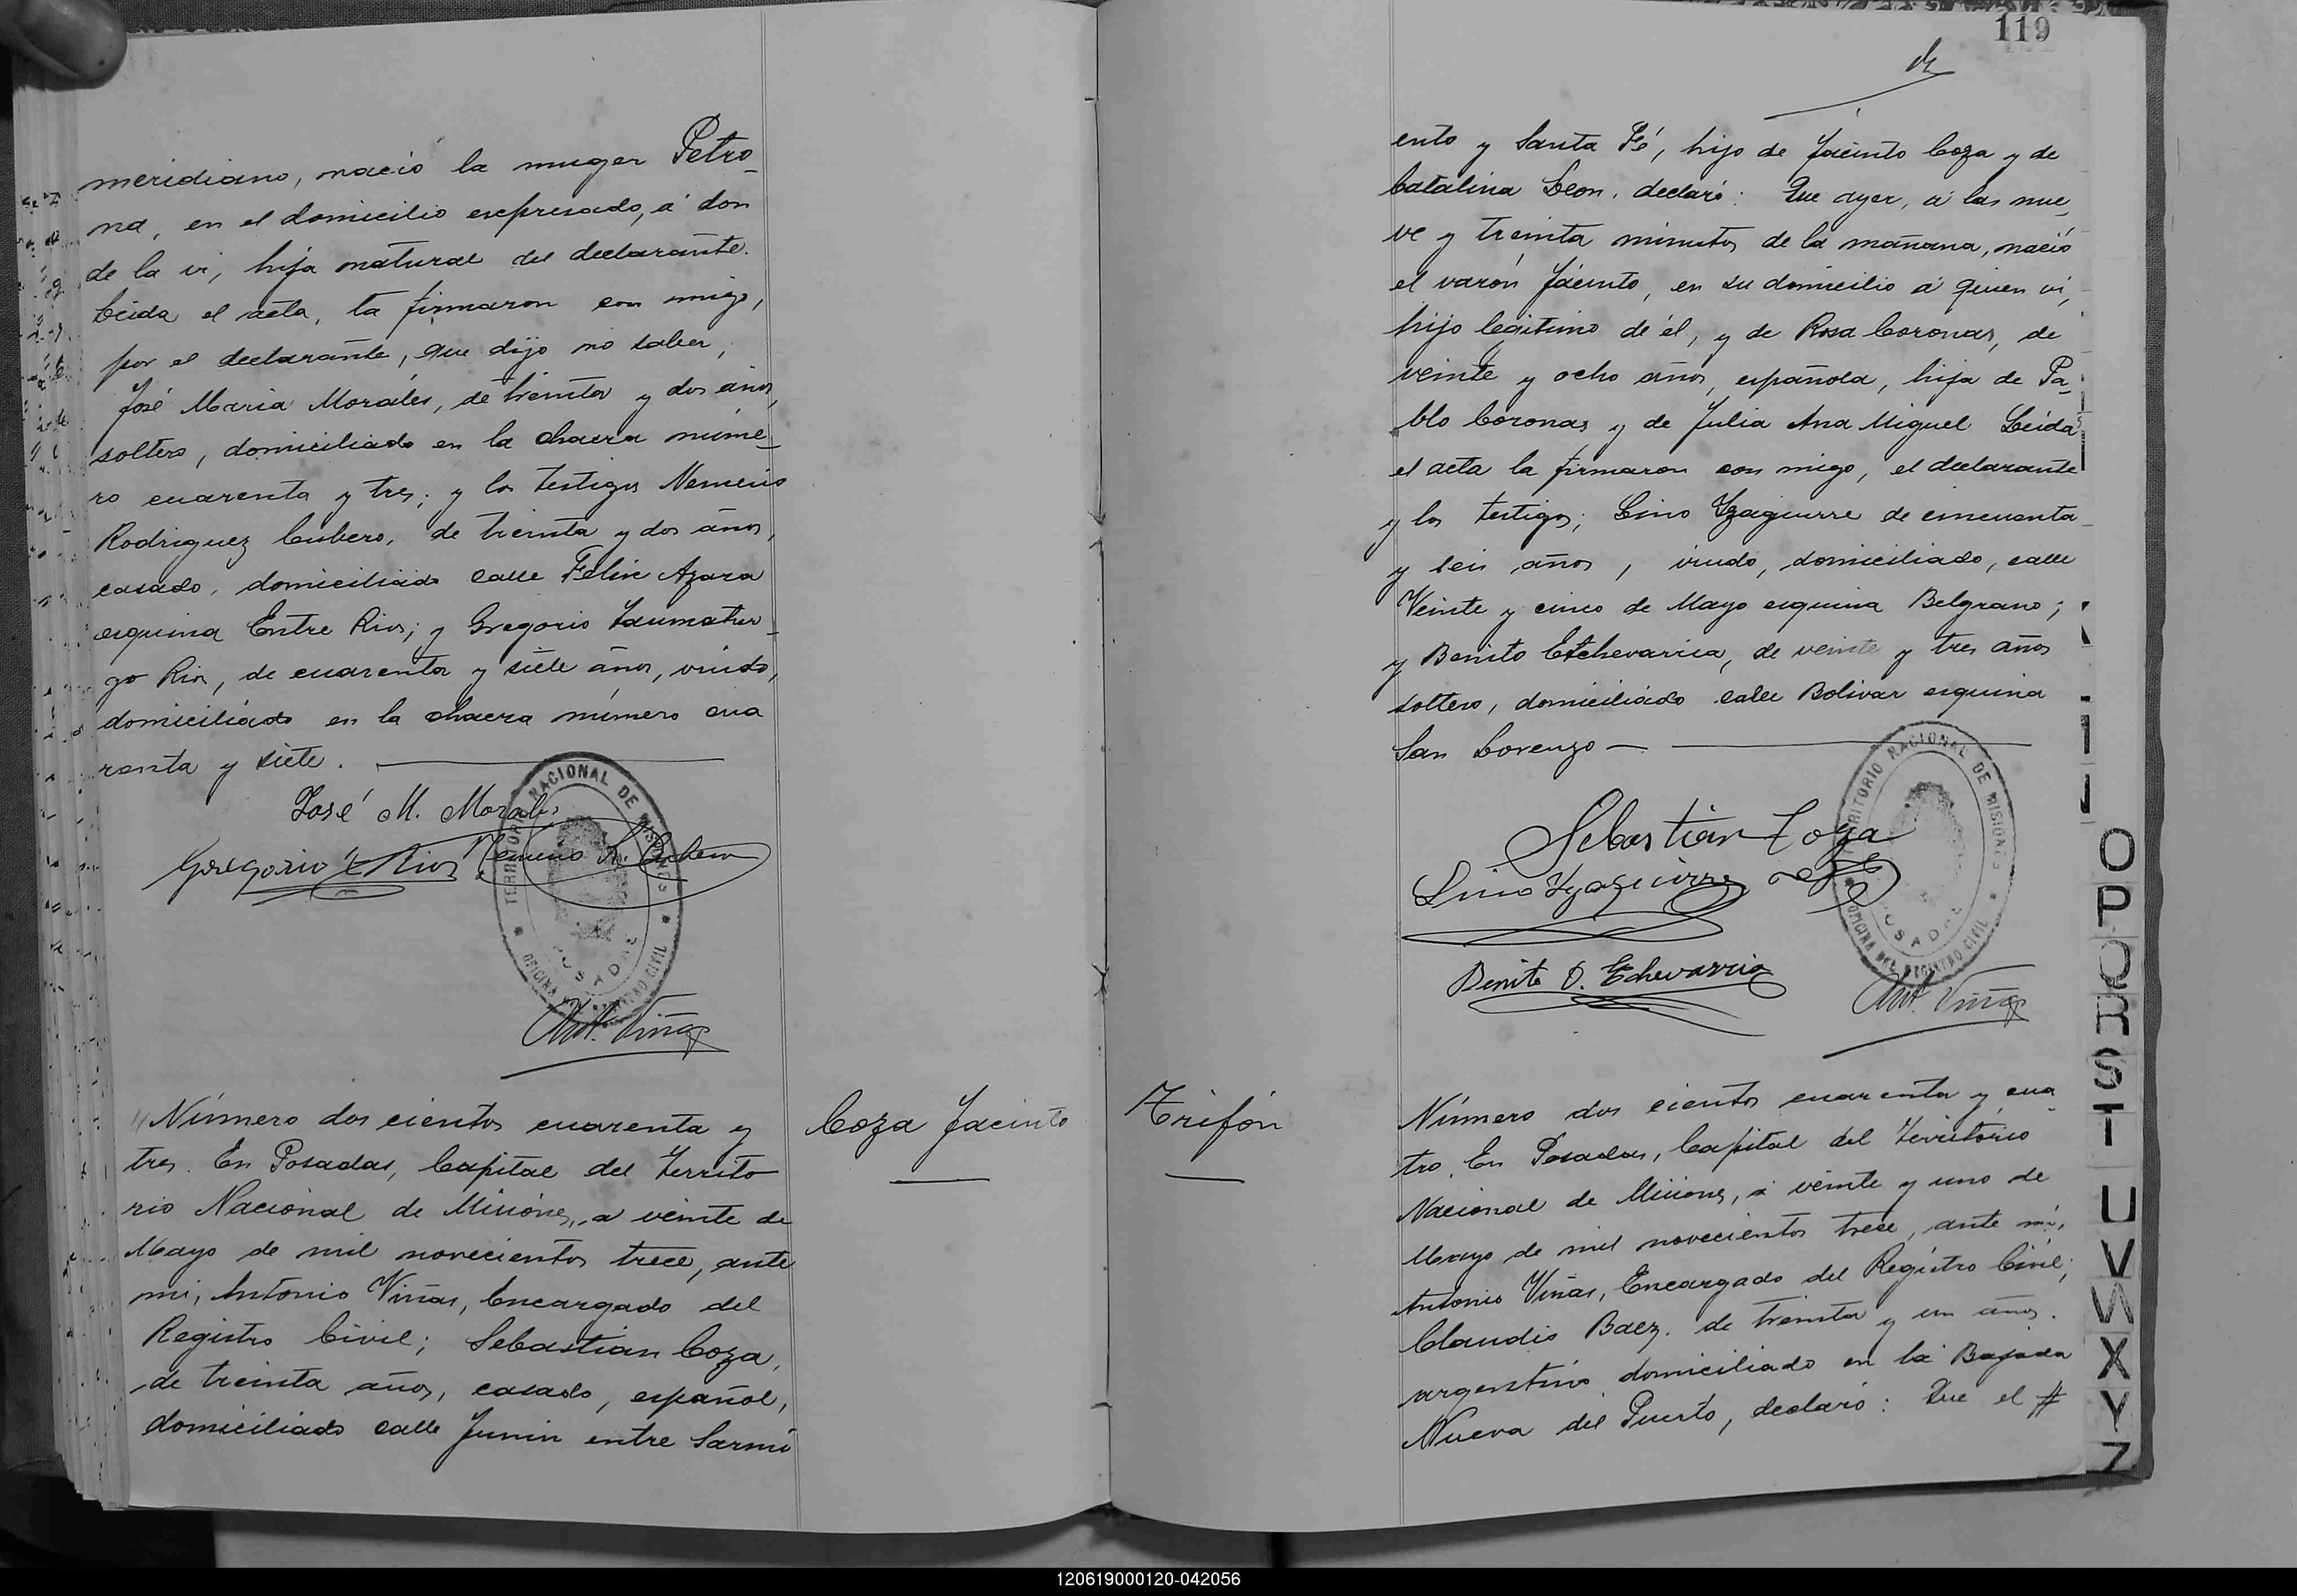 meridiano, nació la muger Petro-
na, en el domicilio espresado, á don
de la vi, hija natural del declarante.
Leida el acta, la firmaron con migo,
por el declarante, que dijo no saber,
José Maria Morales, de treinta y dos años,
soltero, domiciliado en la chacra núme-
ro cuarenta y tres; y los testigos Nemesio
Rodriguez Cubero, de treinta y dos años,
casado, domiciliado calle Felix Azara
esquina Entre Rios; y Gregorio Taumatur-
go Rios, de cuarenta y siete años, viudo,
domiciliado en la chacra número cua
renta y siete.
José M. Morales
Gregorio T. Rios Nemesio R. Cubero
TERRITORIO NACIONAL DE MISIONES
POSADAS
OFICINA DEL REGISTRO CIVIL
Ant. Viñas
Número dos cientos cuarenta y
tres. En Posadas, Capital del Territo
rio Nacional de Misiones, a veinte de
Mayo de mil novecientos trece, ante
mi, Antonio Viñas, Encargado del
Registro Civil; Sebastian Coza,
de treinta años, casado, español,
domiciliado calle Junin entre Sarmi
Coza Jacinto
119
ento y Santa Fé, hijo de Jacinto Coza y de
Catalina Leon, declaró: Que ayer, á las nue-
ve y treinta minutos de la mañana, nació
el varón Jacinto, en su domicilio á quien vi,
hijo legitimo de él, y de Rosa Coronas, de
veinte y ocho años, española, hija de Pa-
blo Coronas y de Julia Ana Miguel Leida
el acta la firmaron con migo, el declarante
y los testigos; Lino Yzaguirre de cincuenta
y seis años, viudo, domiciliado, calle
Veinte y cinco de Mayo esquina Belgrano;
y Benito Etchevarria, de veinte y tres años
soltero, domiciliado calle Bolivar esquina
San Lorenzo
Sebastián Coza
Lino Yzaguirre
TERRITORIO NACIONAL DE MISIONES
POSADAS
OFICINA DEL REGISTRO CIVIL
Benito O. Echevarria
Ant. Viñas
Trifón
Número dos cientos cuarenta y cua
tro. En Posadas, Capital del Territorio
Nacional de Misiones, a veinte y uno de
Mayo de mil novecientos trece, ante mi,
Antonio Viñas, Encargado del Registro Civil;
Claudio Baez, de treinta y un años.
argentino, domiciliado en la Bajada
Nueva del Puerto, declaró: Que el #
O
P
Q
R
S
T
U
V
W
X
Y
Z
120619000120-042056